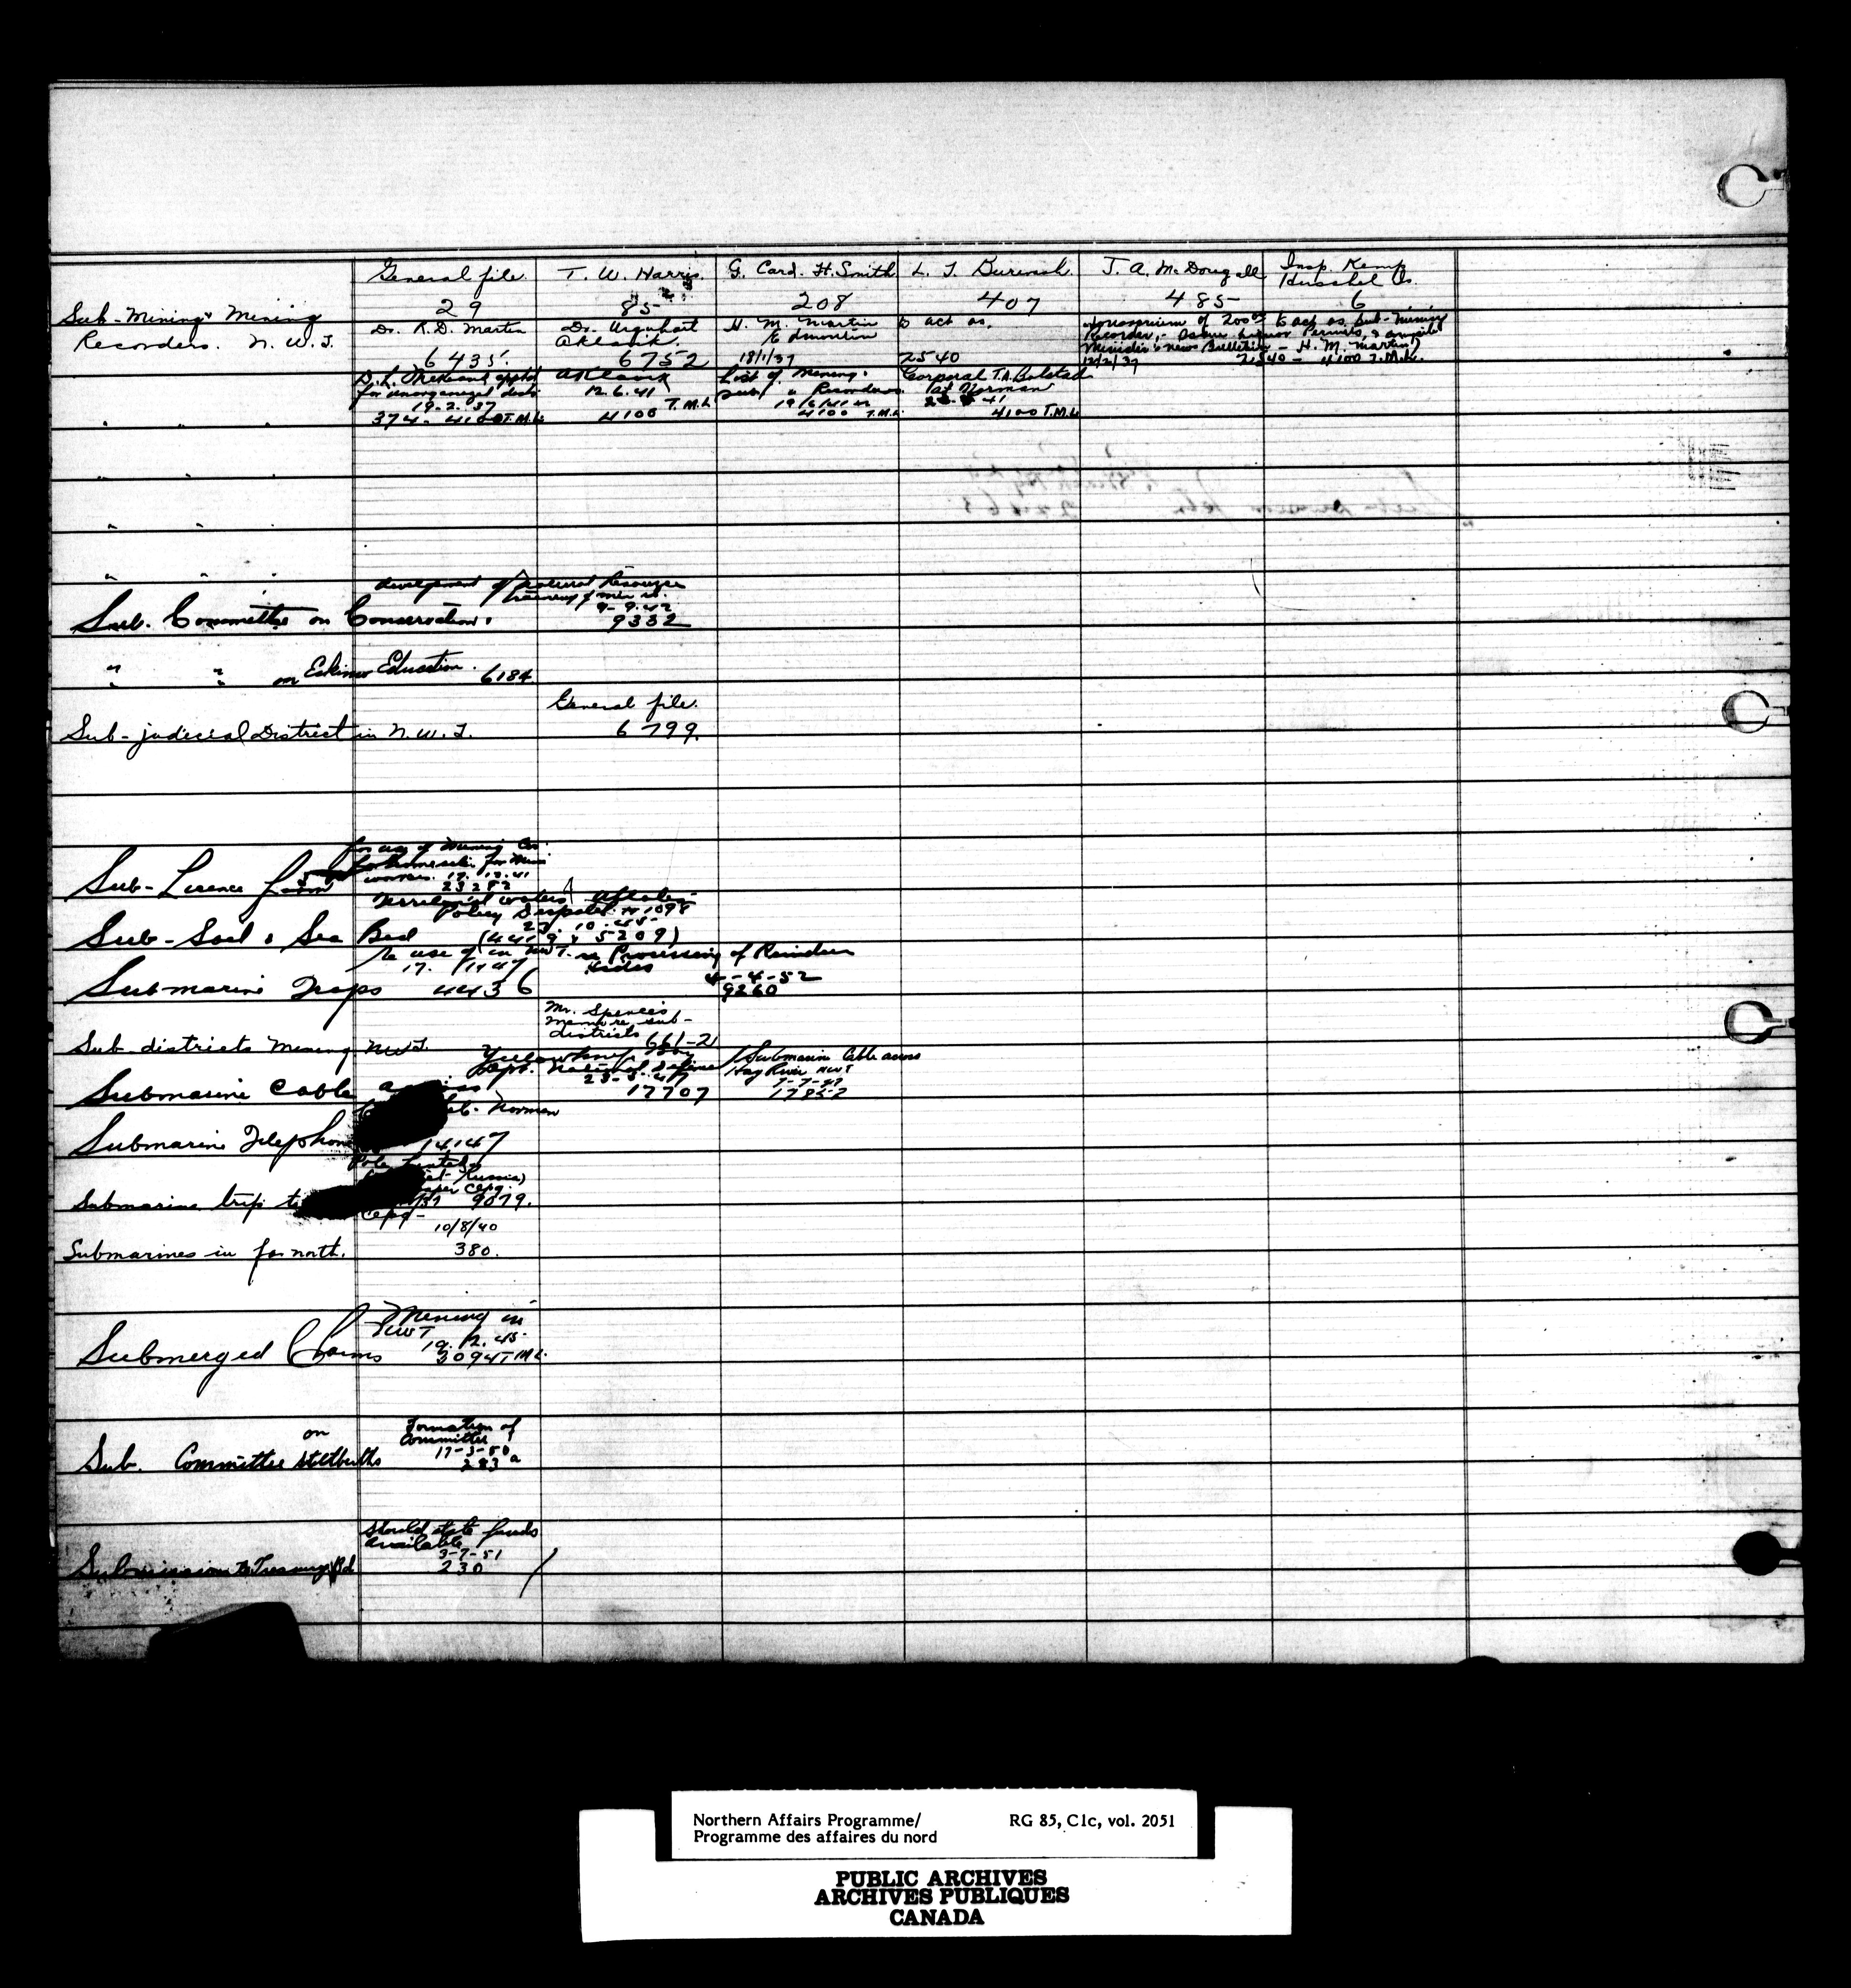 General file T. W. Harris. G. Card. H. Smith L. T. Burwash J. A. McDougall Insp. Kemp
Herschel Is.
29 85 208 407 485 6
Sub-Mining & Mining
Recorders. N. W. T.
Dr. R.D. Martin Dr. Urquhart H. M. Martin to act as.
Aklavik. Edmonton
6435. 6752 18/1/37 2540
Honorarium of 200.00 to act as Sub-Mining
Recorder, - Issue Liquor Permits, &
Minister's news Bulletin - H. M. Martin)
12/2/37 2540 - 4100 T.M.L.
D.L. McKeand apptd Aklavik List of Mining & Corporal T.A. Bolstad
for unorganized dists 12.6.41 Sub " Recorders at Norman
19.2.37 T.M.L 19/6/41 41
374- 4100 T.M.L 4100 4100 T.M.L. 4100 T.M.L
" " "
" "
" "
" " "
development of natural resources
9-9-42
Sub. Committee on Conservation. 9332
" " on Eskimo Education. 6184
General file.
Sub-judicial District in N.W.T. 6799.
for use of Mining Co.
workers. 17.12.41
Sub-License form 23282
Territorial waters
Policy Despatch # 1098
23.10.45
Sub-Soil & Sea Bed (4419 & 5209)
re use of in NWT. re Processing of Reindeer
Hides 4-4-52
Submarine Traps 4436 9260
Mr. Spence's
memo re sub-
districts 661-2
Sub-districts Mining NWT.
Yellowknife Bay Submarine Cable across
Dept. National Defence Hay River NWT
23-5-47 7-7-47
Submarine Cable across 17707 17852
Norman
Submarine Telephone 14147
Russia)
Submarine trip to 9079.
10/8/40
Submarines in far north. 380.
Mining in
NWT
19.12.45.
Submerged Claims 3094 T.M.L.
Formation of
Committee
on 17-3-50
Sub. Committee Stillbirths 283a
Should state funds
available
3-7-51
Submissions to Treasury Bd 230
Northern Affairs Programme/ RG 85, C1c, vol. 2051
Programme des affaires du nord
PUBLIC ARCHIVES
ARCHIVES PUBLIQUES
CANADA